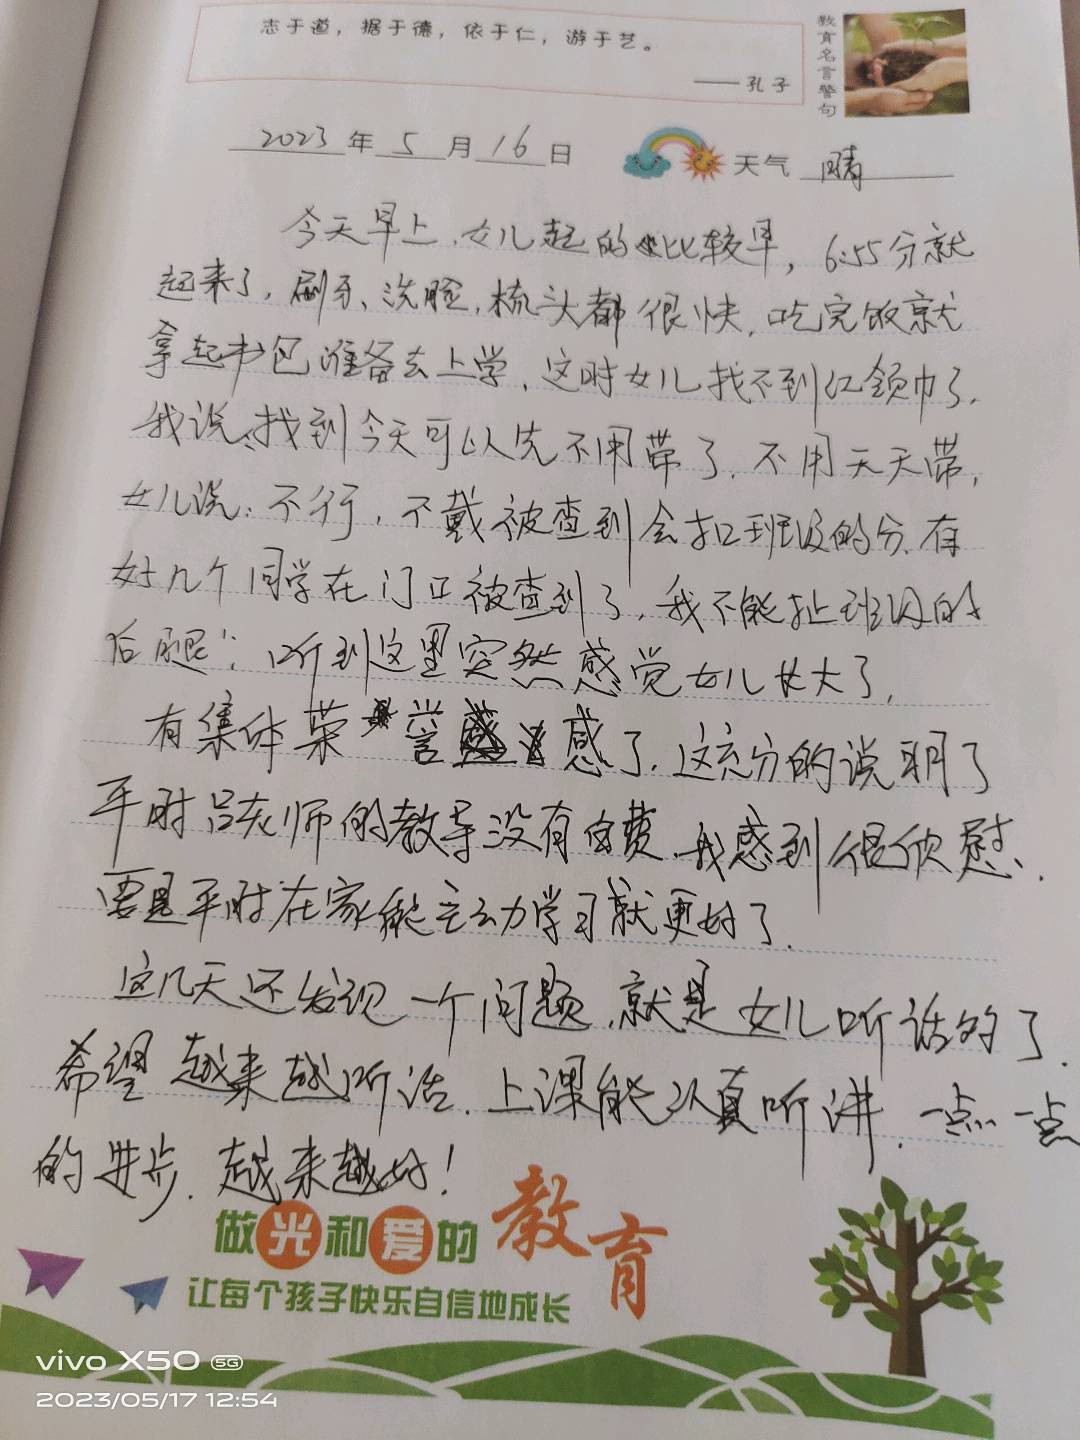 志于道，据于德，依于仁，游于艺。
——孔子
教育名言警句
2023年5月16日 天气 晴
今天早上，女儿起的比较早，6:55分就
起来了，刷牙、洗脸，梳头都很快，吃完饭就
拿起书包准备去上学，这时女儿找不到红领巾了，
我说，找到今天可以先不用带了，不用天天带，
女儿说：不行，不戴被查到会扣班级的分，有
好几个同学在门口被查到了，我不能扯班级的
后腿"；听到这里突然感觉女儿长大了，
有集体荣誉感了，这充分的说明了
平时吕老师的教导没有白费，我感到很欣慰、
要是平时在家能主动学习就更好了.
这几天还发现一个问题，就是女儿听话的了.
希望越来越听话，上课能认真听讲，一点一点
的进步，越来越好！
做光和爱的教育
让每个孩子快乐自信地成长
vivo X50 5G
2023/05/17 12:54